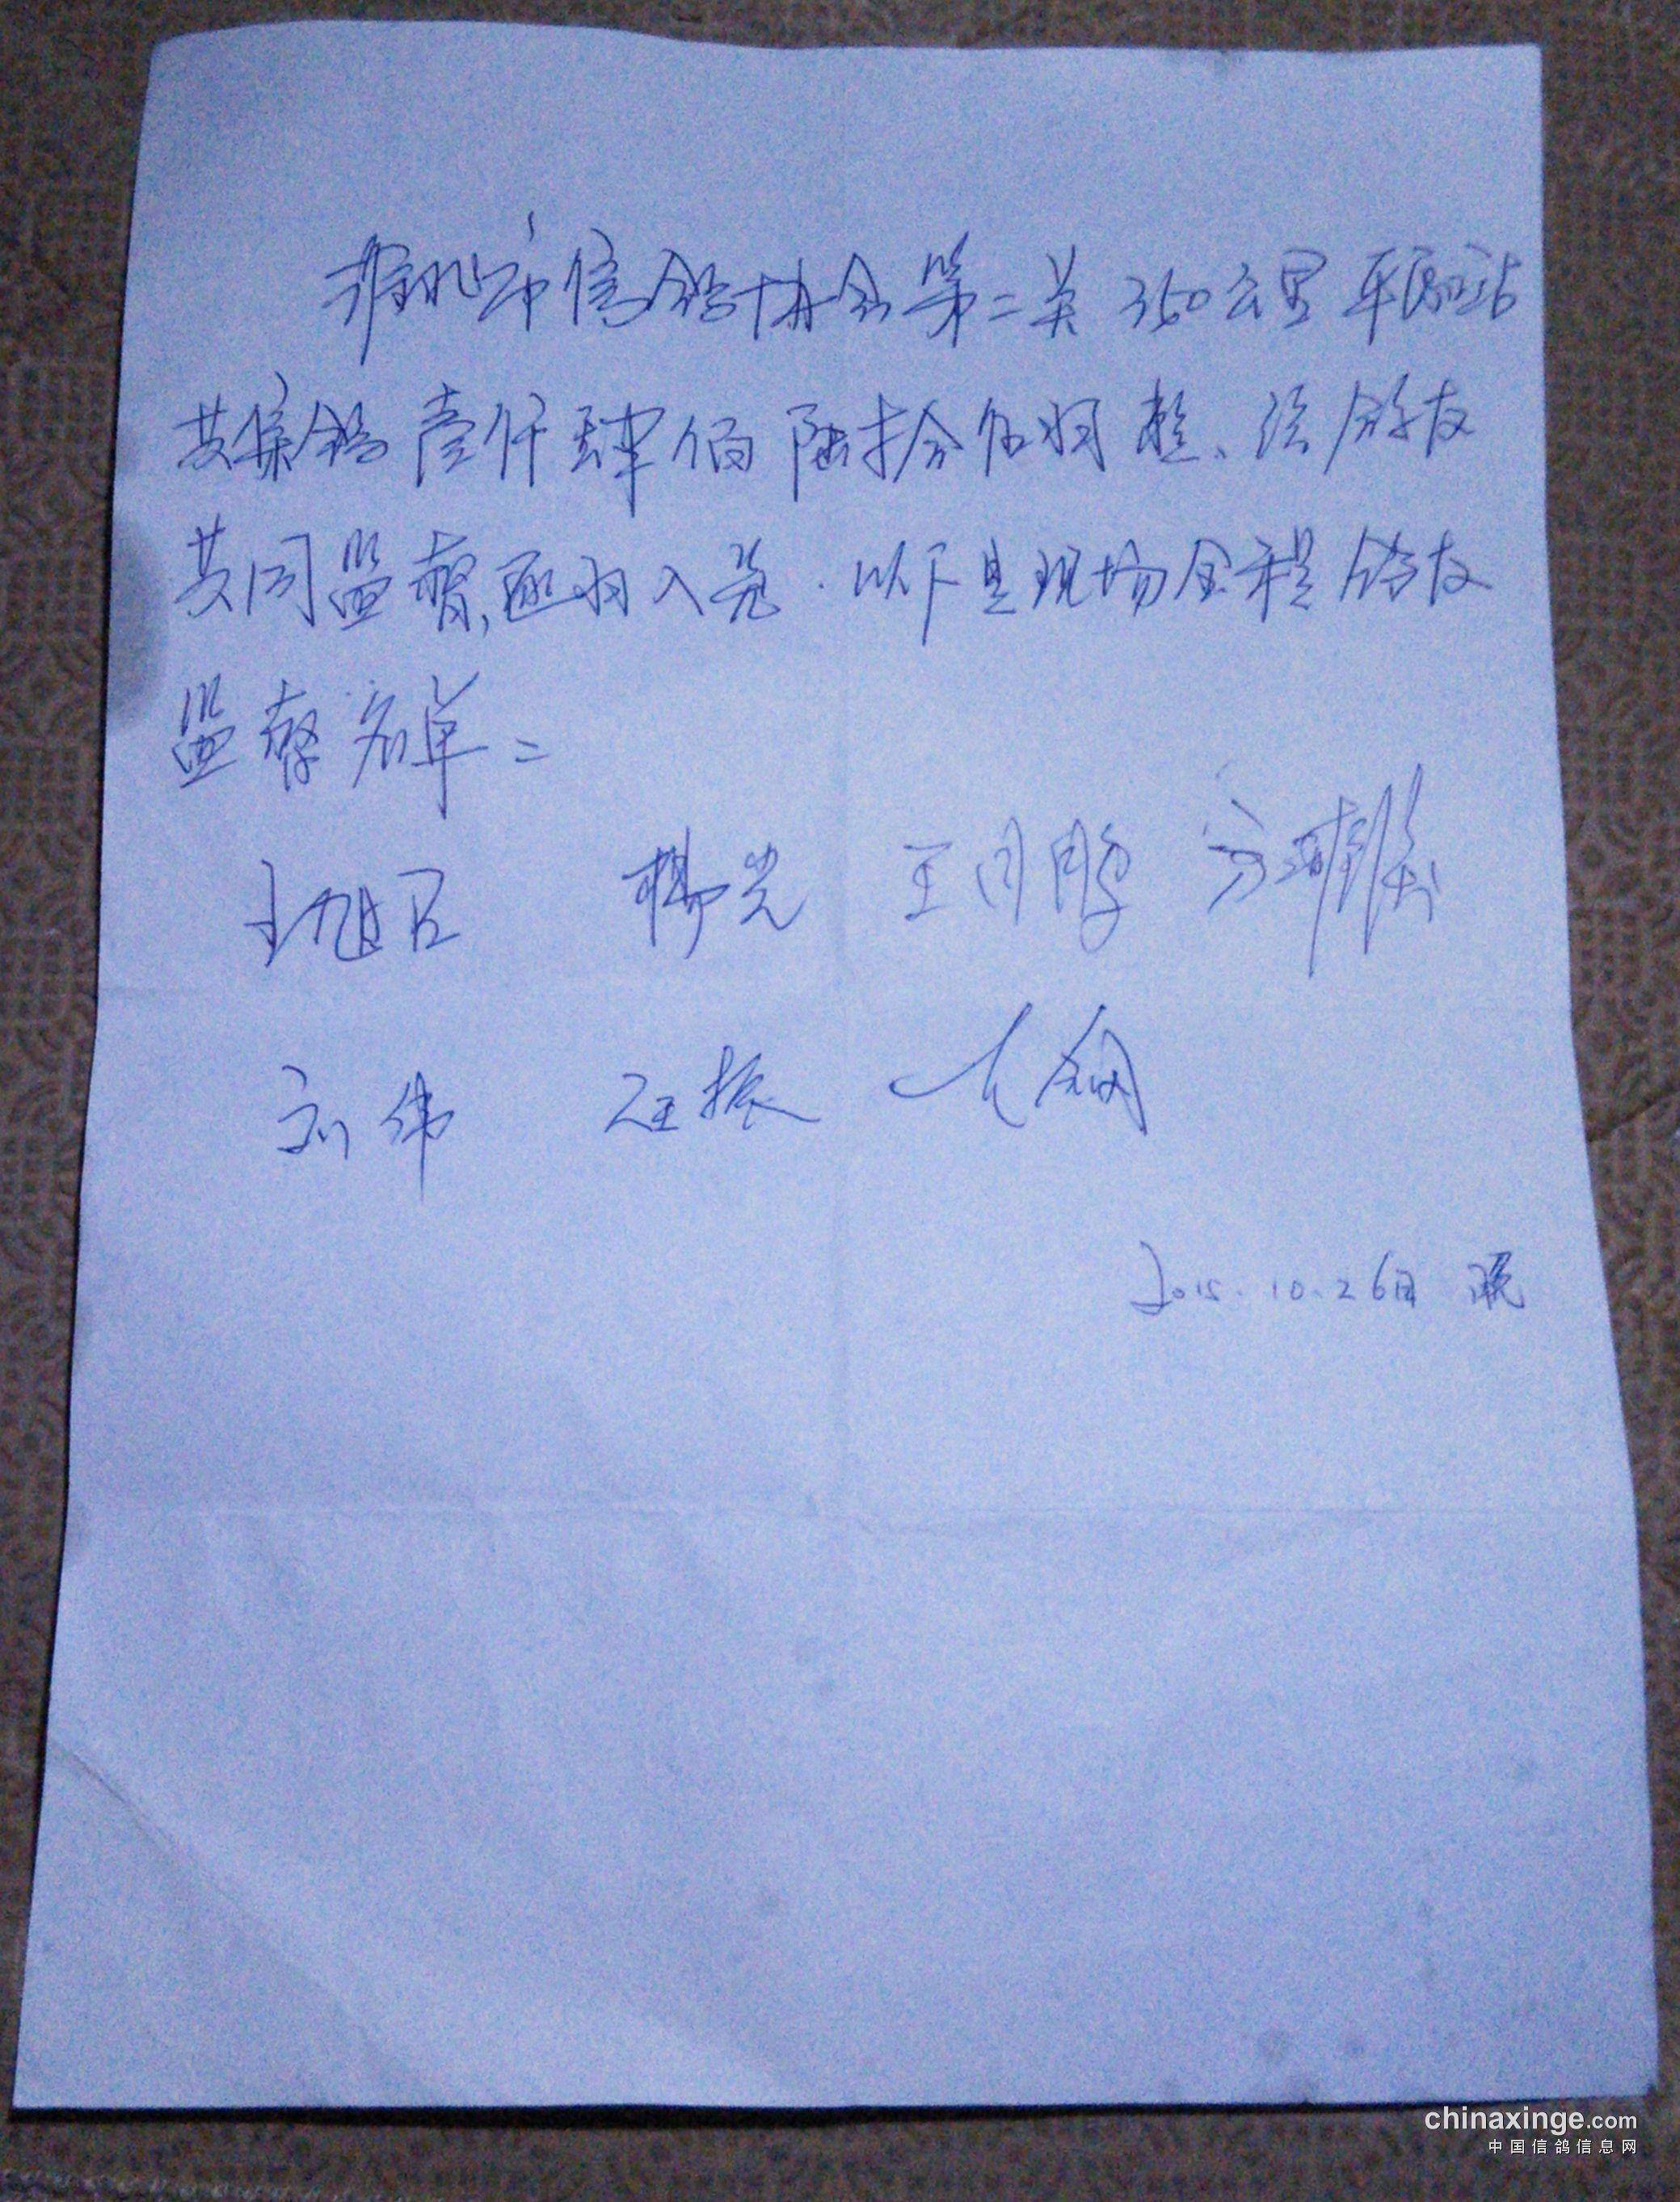 淮北市信鸽协会第二关350公里平原站
共集鸽壹仟肆佰陆拾伍羽整、经鸽友
共同监督,逐羽入笼.以下是现场全程鸽友
监督名单:
王旭 光 王月鹏
刘伟 汪振
2015.10.26日 晚
chinaxinge.com
中国信鸽信息网